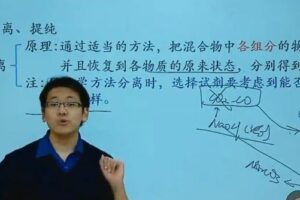 离、提纯
原理:通过适当的方法,把混合物中各组分的物
离
并且恢复到各物质的原来状态,分别得到
注: 学方法分离时,选择试剂要考虑到能否
样。
CO₂ CO
NaOH